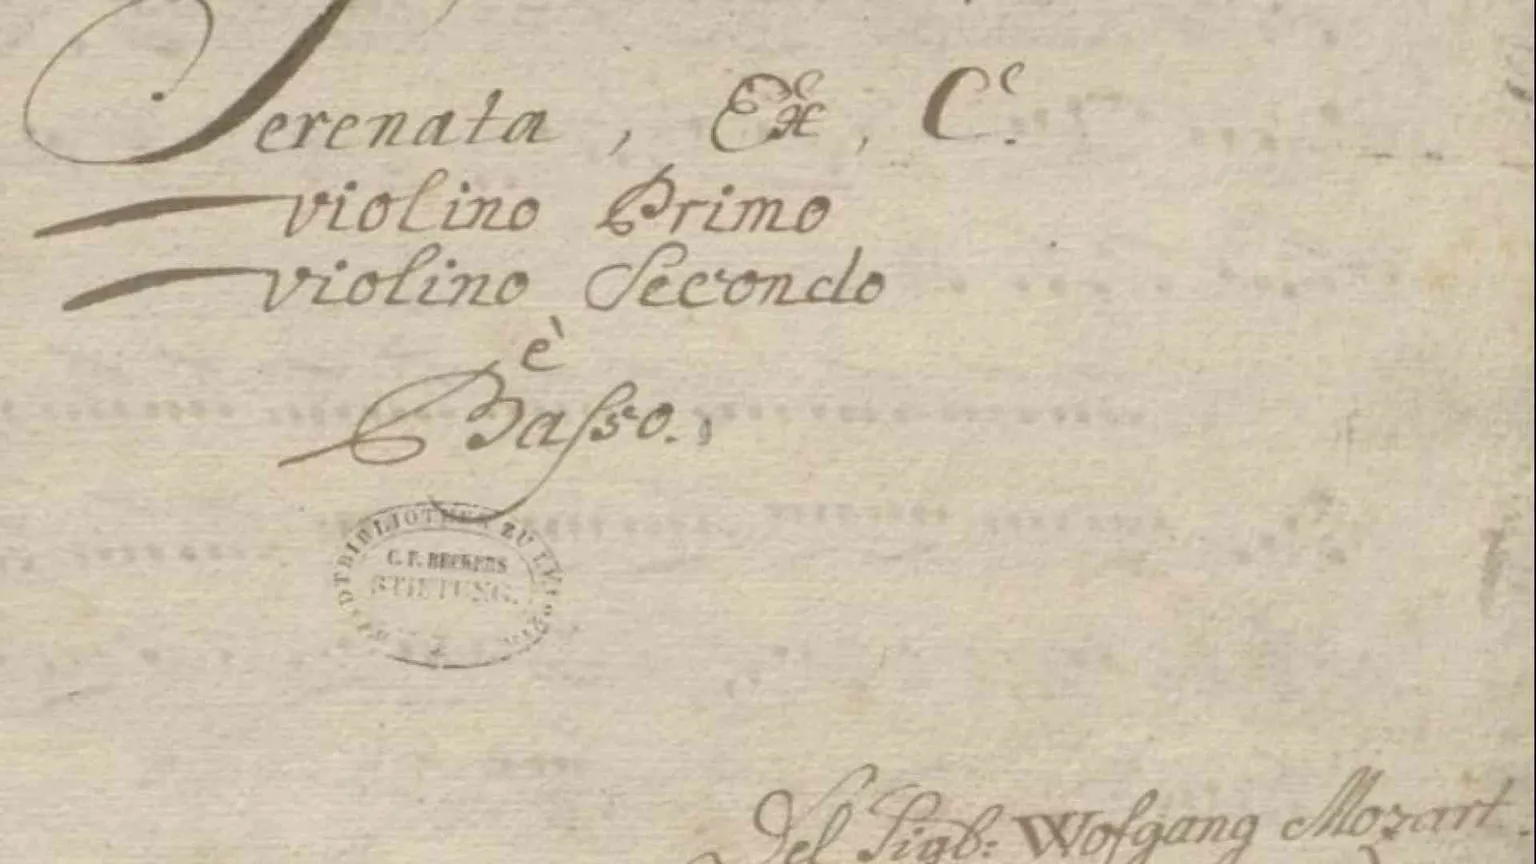 Serenata, Ex, C.
violino Primo
violino Secondo
è
Baſso.
STADTBIBLIOTHEK ZU LEIPZIG
C. F. BECKERS
STIFTUNG.
Del Sigr: Wolfgang Mozart.